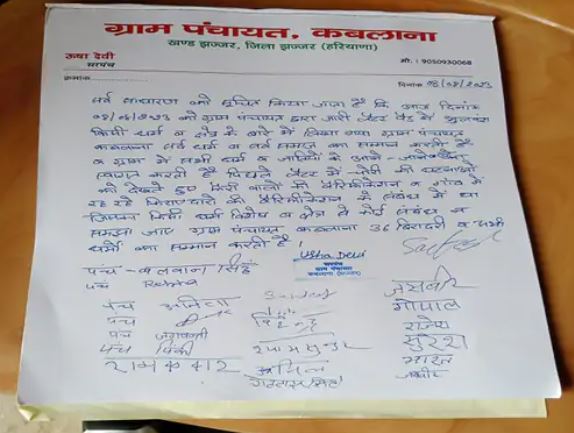 ग्राम पंचायत, कबलाना
खण्ड झज्जर, जिला झज्जर (हरियाणा)
ऊषा देवी
सरपंच
मो. : 9050930068
क्रमांक
दिनांक 08/08/2023
सर्व साधारण को सूचित किया जाता है कि आज दिनांक
को ग्राम पंचायत द्वारा जारी लेटर पैड में
किसी धर्म व क्षेत्र के बारे में लिखा गया ग्राम पंचायत
कबलाना सर्व धर्म व सर्व समाज का सम्मान करती है
व ग्राम में सभी धर्म व जातियों के आने - जाने
स्वागत करती है पिछले लेटर में चोरी की घटनाओं
को देखते हुए फेरी वालों की वैरिफिकेशन व गांव में
रह रहे किराएदारों की वैरिफिकेशन के संबंध में था
जिसका किसी धर्म विशेष व क्षेत्र से कोई संबंध न
समझा जाए ग्राम पंचायत कबलाना 36 बिरादरी व सभी
धर्मों का सम्मान करती है ।
Usha Devi
सरपंच
ग्राम पंचायत
कबलाना (झज्जर)
पंच - बलवान सिंह
पंच
पंच अनिता
पंच
पंच
पंच पिंकी
रामकवार
श्यामसुन्दर
अनिल
जसवीर
गोपाल
राजेश
सुरेश
भारत